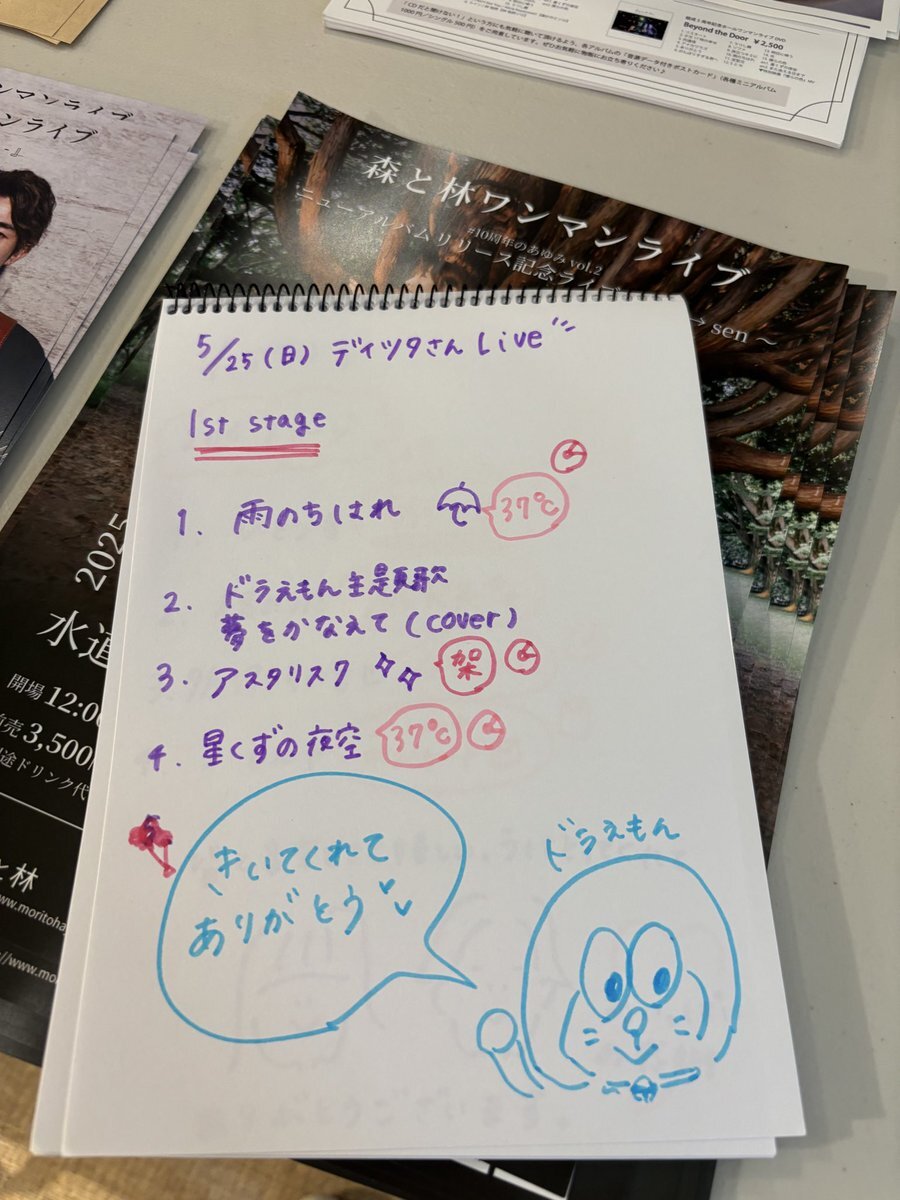 ンマンライブ
ンマンライブ
「CDだと聴けない!」という方にも気軽に聴いて頂けるよう、各アルバムの「音源データ付きポストカード」(各種ミニアルバム
1000円/シングル500円)をご用意しています。ぜひお気軽に物販にお立ち寄りください♪
Beyond the Door ¥2,500
森と林ワンマンライブ
#10周年のあゆみ vol.2
ニューアルバムリリース記念ライブ
sen ~
5/25(日) ディツタさん Live
1st stage
1. 雨のちはれ 37℃
2. ドラえもん主題歌
夢をかなえて(cover)
3. アスタリスク 架
4. 星くずの夜空 37℃
きいてくれて
ありがとう
ドラえもん
2025
水道
開場 12:00
売 3,500
途ドリンク代
と林
www.moritoha
://www.mori